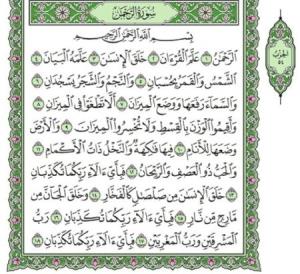 سُورَةُ الرَّحْمَٰن
بِسْمِ اللَّهِ الرَّحْمَٰنِ الرَّحِيمِ
الرَّحْمَٰنُ ١ عَلَّمَ الْقُرْءَانَ ٢ خَلَقَ الْإِنسَٰنَ ٣ عَلَّمَهُ الْبَيَانَ ٤
الشَّمْسُ وَالْقَمَرُ بِحُسْبَانٍ ٥ وَالنَّجْمُ وَالشَّجَرُ يَسْجُدَانِ ٦
وَالسَّمَاءَ رَفَعَهَا وَوَضَعَ الْمِيزَانَ ٧ أَلَّا تَطْغَوْا فِي الْمِيزَانِ ٨
وَأَقِيمُوا الْوَزْنَ بِالْقِسْطِ وَلَا تُخْسِرُوا الْمِيزَانَ ٩ وَالْأَرْضَ
وَضَعَهَا لِلْأَنَامِ ١٠ فِيهَا فَٰكِهَةٌ وَالنَّخْلُ ذَاتُ الْأَكْمَامِ ١١
وَالْحَبُّ ذُو الْعَصْفِ وَالرَّيْحَانُ ١٢ فَبِأَيِّ ءَالَاءِ رَبِّكُمَا تُكَذِّبَانِ
١٣ خَلَقَ الْإِنسَٰنَ مِن صَلْصَٰلٍ كَالْفَخَّارِ ١٤ وَخَلَقَ الْجَانَّ مِن
مَّارِجٍ مِّن نَّارٍ ١٥ فَبِأَيِّ ءَالَاءِ رَبِّكُمَا تُكَذِّبَانِ ١٦ رَبُّ
الْمَشْرِقَيْنِ وَرَبُّ الْمَغْرِبَيْنِ ١٧ فَبِأَيِّ ءَالَاءِ رَبِّكُمَا تُكَذِّبَانِ ١٨
الحزب
٥٤